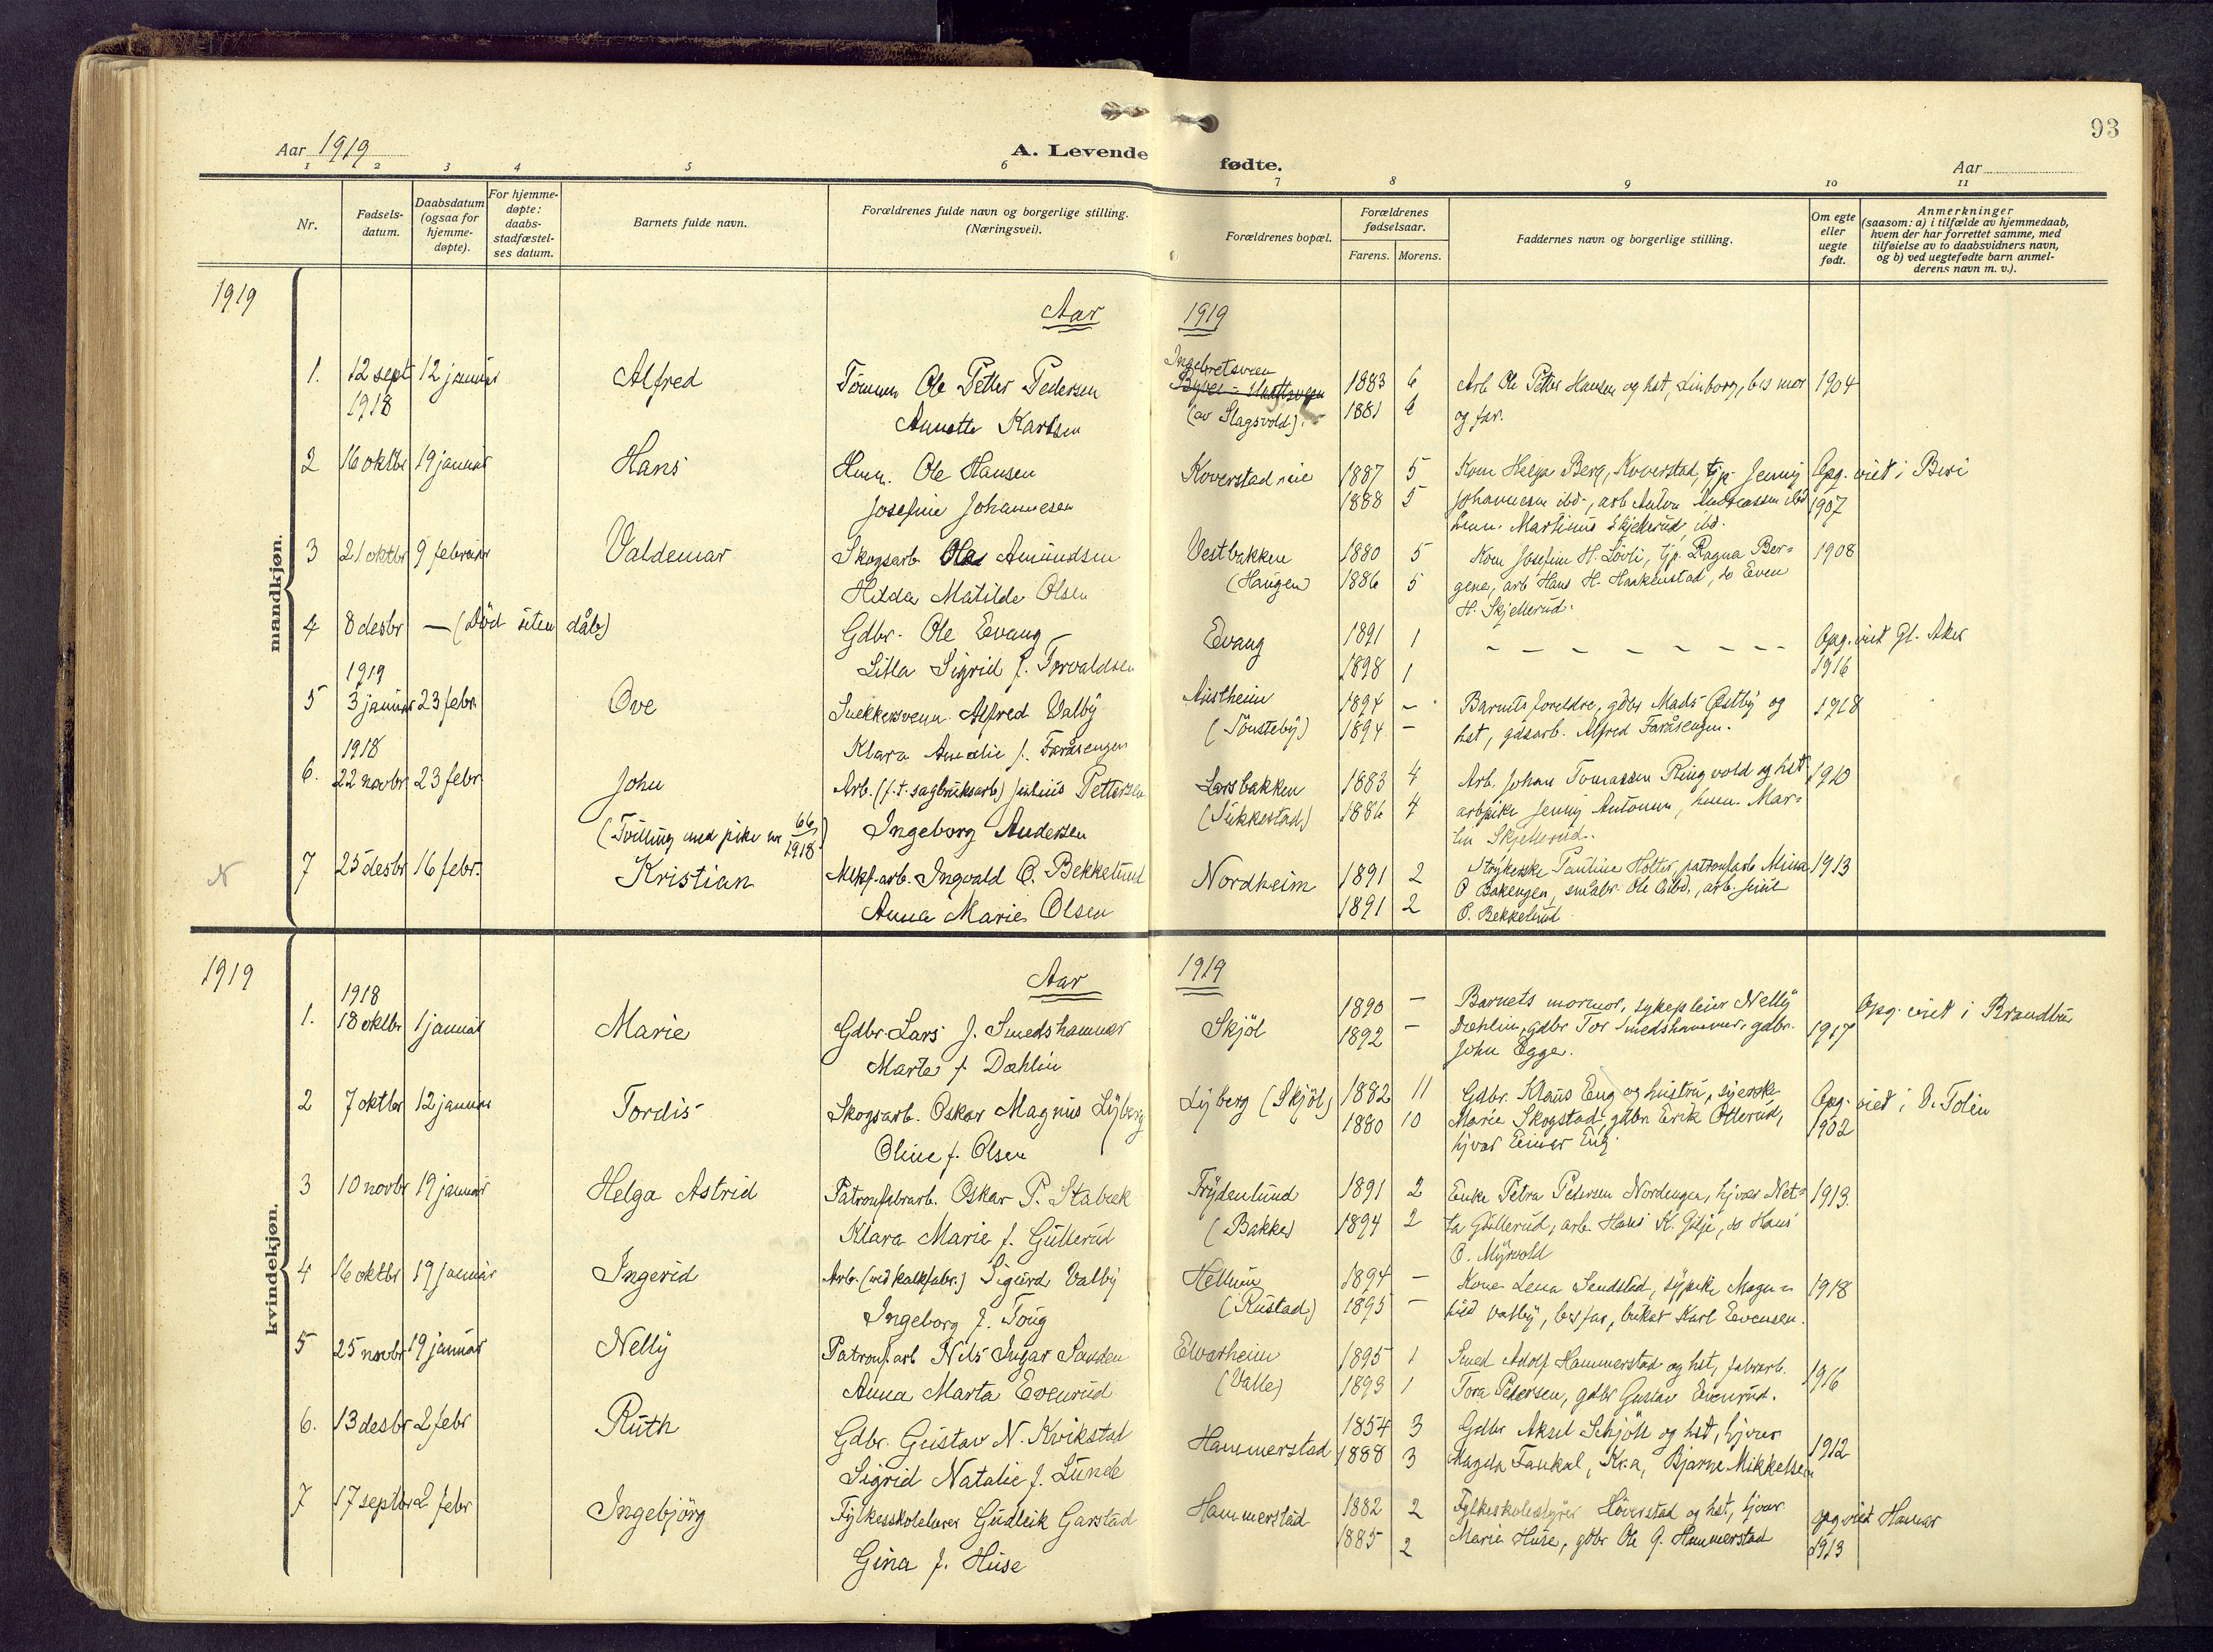 93
Aar 1919
A. Levende fødte.
Aar
1 2 3 4 5 6 7 8 9 10 11
Nr.
Fødsels-
datum.
Daabsdatum
(ogsaa for
hjemme-
døpte).
For hjemme-
døpte:
daabs-
stadfæstel-
ses datum.
Barnets fulde navn.
Forældrenes fulde navn og borgerlige stilling.
(Næringsvei).
Forældrenes bopæl.
Forældrenes
fødselsaar.
Farens. Morens.
Faddernes navn og borgerlige stilling.
Om egte
eller
uegte
født.
Anmerkninger
(saasom: a) i tilfælde av hjemmedaab,
hvem der har forrettet samme, med
tilføielse av to daabsvidners navn,
og b) ved uegtefødte barn anmel-
derens navn m. v.).
1919
Aar 1919
mandkjøn.
1. 12 sept 12 januar Alfred Tömm. Ole Petter Pedersen Ingebretsveen 1883 6 Arb Ole Petter Hansen og hst, Linborg, bes mor 1904
1918 Annette Karlsen (av Slagsvold) 1881 6 og far.
2 16 oktbr 19 januar Hans Hmm. Ole Hansen Koverstad eie 1887 5 Kone Helga Berg, Koverstad, tjp Jenny Opg. viet i Biri
Josefine Johannesen 1888 5 Johannesen ibd., arb Anton Andreassen ibd 1907
hmm. Martinus Skjellerud, ibd.
3 21 oktbr 9 februar Valdemar Skogsarb. Ola Amundsen Vestbakken 1880 5 Kone Josefine H. Lövli, tjp. Ragna Ber- 1908
Hilda Matilde Olsen (Haugen) 1886 5 gene, arb Hans H. Haakenstad, do Even
H. Skjellerud.
4 8 desbr — (Död uten dåb) Gdbr. Ole Evang Evang 1891 1 - - - - - - - - Opg. viet Gl. Aker
Lilla Sigrid f. Torvaldsen 1898 1 1916
1919
5 3 januar 23 febr. Ove Snekkersvenn Alfred Valby Austheim 1894 - Barnets foreldre, gdbr Mads Østby og 1918
Klara Amalie f. Faråsengen (Tönsteby) 1894 - hst, gdsarb. Alfred Faråsengen.
1918
6. 22 novbr 23 febr. John Arb. (f.t. sagbruksarb) Julius Pettersen Larsbakken 1883 4 Arb. Johan Tomassen Ringvold og hst 1910
(Tvilling med pike nr 66/1918) Ingeborg Andersen (Sukkestad) 1886 4 arbpike Jenny Antonsen, hmm. Mar-
tin Skjellerud.
N 7 25 desbr 16 febr. Kristian Mekf.arb. Ingvald O. Bekkelund Nordheim 1891 2 Strykerske Pauline Holter, patronfarb Mina 1913
Anna Marie Olsen 1891 2 O Bakengen, småbr. Ole ibd., arb. Emil
O. Bekkelund
1919
Aar 1919
kvindekjøn.
1918
1. 18 oktbr 1 januar Marie Gdbr. Lars J. Smedshammer Skjöl 1890 - Barnets mormor, sykepleier Nelly Opg. viet i Brandbu
Marte f. Dæhlin 1892 - Dæhlin, gdbr Tor Smedshammer, gdbr. 1917
John Egge.
2 7 oktbr 12 januar Tordis Skogsarb. Oskar Magnus Lyberg Lyberg (Skjöl) 1882 11 Gdbr. Klaus Eng og hustru, syerske Opg. viet i V. Toten
Oline f. Olsen 1880 10 Marie Skogstad, gdbr. Erik Otterud, 1902
hjvar Einar Eng.
3 10 novbr 19 januar Helga Astrid Patronfabrarb. Oskar P. Stabæk Frydenlund 1891 2 Enke Petra Pedersen Nordengen, hjvær Net- 1913.
Klara Marie f. Gullerud (Bakke) 1894 2 ta Gullerud, arb. Hans K. Gilje, do Hans
O. Myrvold
4 16 oktbr 19 januar Ingerid Arb. (ved kalkfabr.) Sigurd Valby Hellum 1894 - Kone Lena Sendstad, sypike Magn- 1918
Ingeborg f. Toug (Rustad) 1895 - hild Valby, besfar, bruker Karl Evensen.
5 25 novbr 19 januar Nelly Patronf.arb Nils Ingar Sanden Elvarheim 1895 1 Smed Adolf Hammerstad og hst, fabrarb. 1916
Anna Marta Evenrud (Valle) 1893 1 Tora Pedersen, gdbr Gustav Evenrud.
6. 13 desbr 2 febr Ruth Gdbr. Gustav N. Kvikstad Hammerstad 1854 3 Gdbr Aksel Schjöll og hst, hjvar 1912
Sigrid Natalie f. Lunde 1888 3 Magda Faukal, Kr.a, Bjarne Mikkelsen
7 17 septbr 2 febr Ingebjörg Fylkesskolelærer Gudleik Garstad Hammerstad 1882 2 Fylkeskolestyrer Höverstad og hst, hjvar opg. viet Hamar
Gina f. Huse 1885 2 Marie Huse, gdbr Ole G. Hammerstad 1913